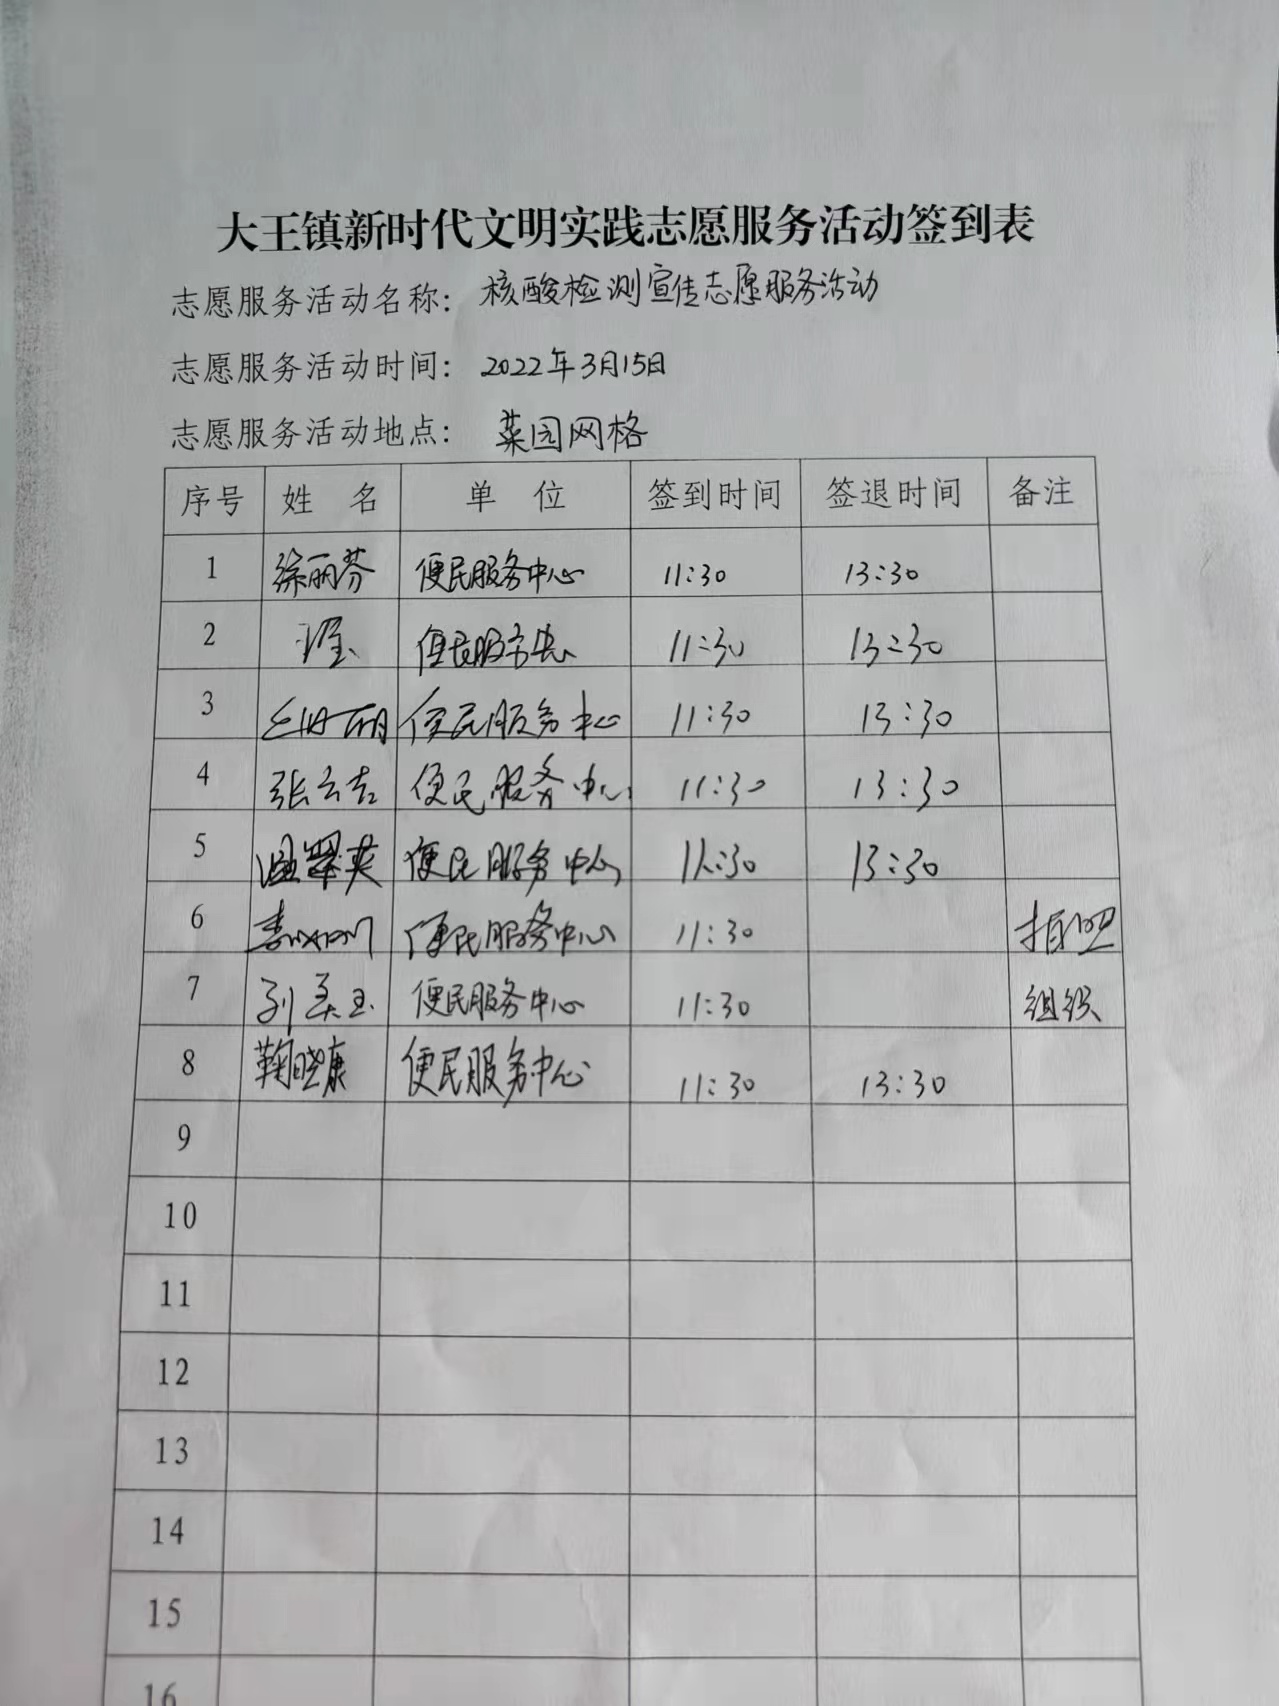 大王镇新时代文明实践志愿服务活动签到表
志愿服务活动名称：核酸检测宣传志愿服务活动
志愿服务活动时间：2022年3月15日
志愿服务活动地点：菜园网格
序号 姓 名 单 位 签到时间 签退时间 备注
1 徐丽芬 便民服务中心 11:30 13:30
2 便民服务中心 11:30 13:30
3 便民服务中心 11:30 13:30
4 张云吉 便民服务中心 11:30 13:30
5 便民服务中心 11:30 13:30
6 便民服务中心 11:30 拍照
7 刘美玉 便民服务中心 11:30 组织
8 鞠晓康 便民服务中心 11:30 13:30
9
10
11
12
13
14
15
16